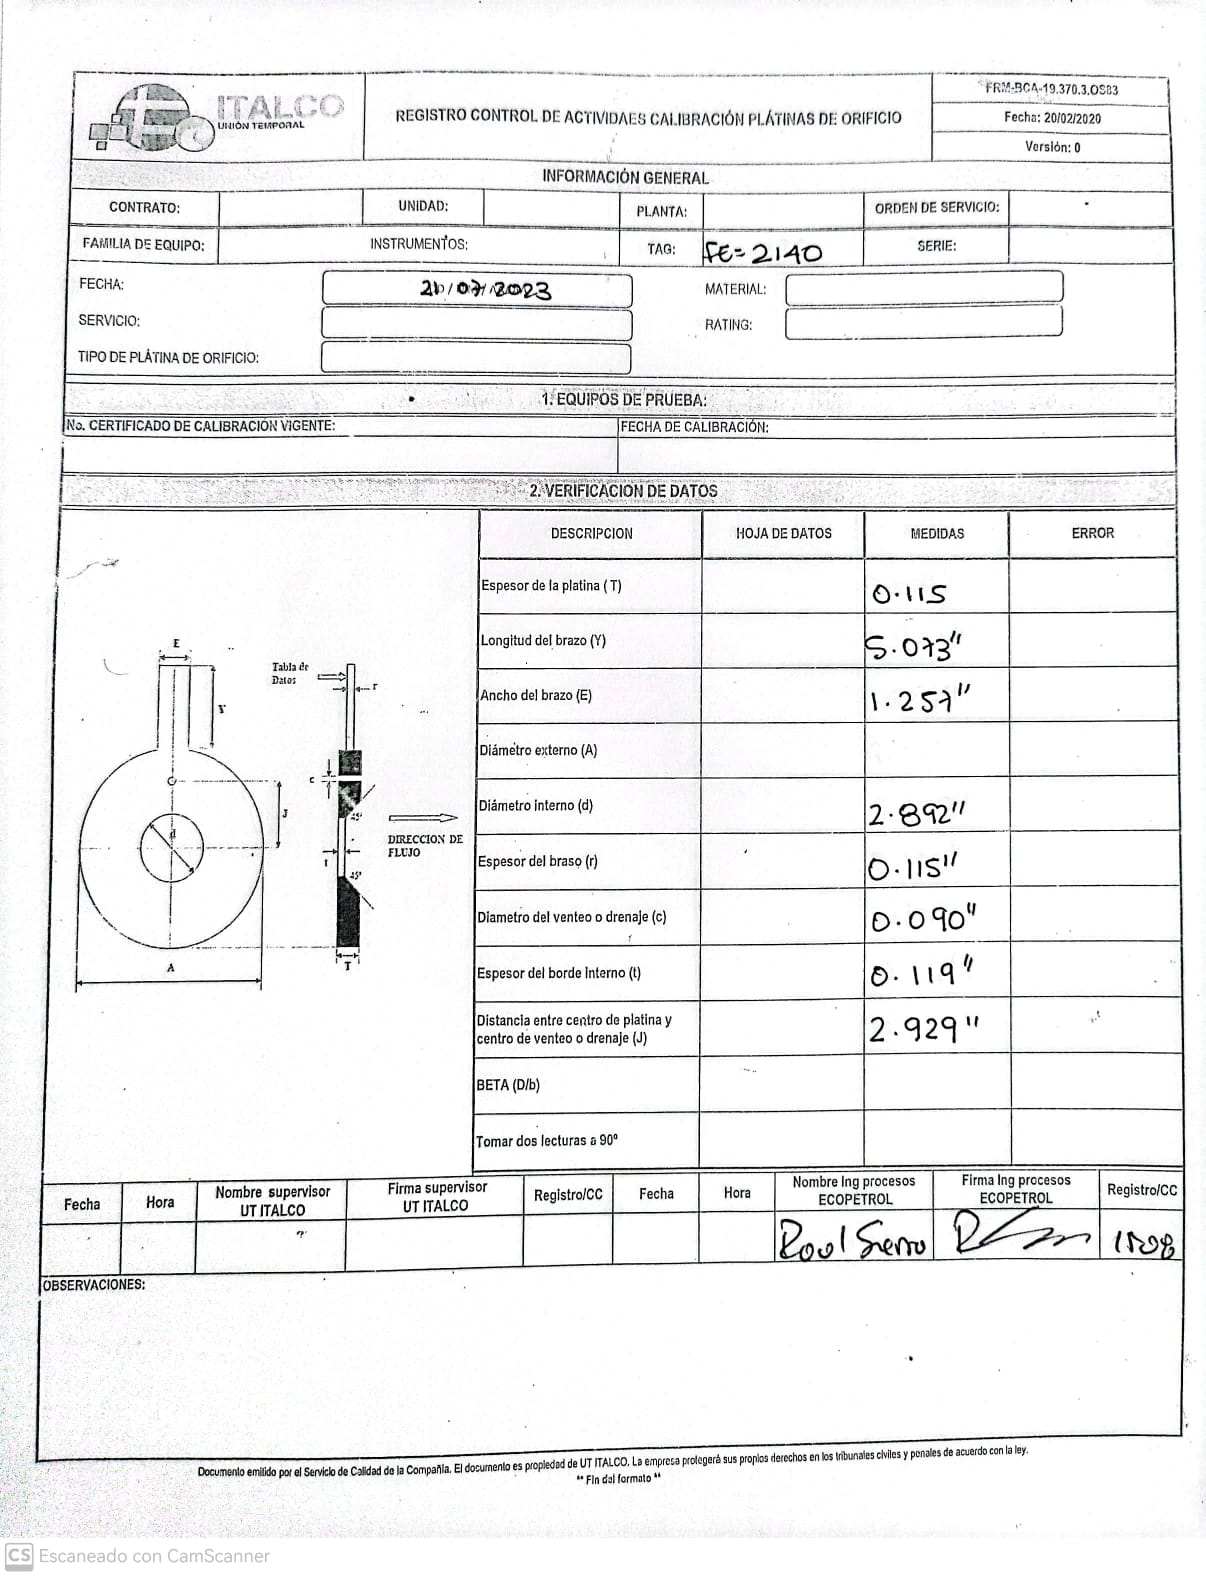 ITALCO
UNIÓN TEMPORAL
REGISTRO CONTROL DE ACTIVIDAES CALIBRACIÓN PLÁTINAS DE ORIFICIO
FRM-BCA-19.370.3.OS83
Fecha: 20/02/2020
Versión: 0
INFORMACIÓN GENERAL
CONTRATO: UNIDAD: PLANTA: ORDEN DE SERVICIO:
FAMILIA DE EQUIPO: INSTRUMENTOS: TAG: FE=2140 SERIE:
FECHA: /07/2023 MATERIAL:
SERVICIO: RATING:
TIPO DE PLÁTINA DE ORIFICIO:
1. EQUIPOS DE PRUEBA:
No. CERTIFICADO DE CALIBRACIÓN VIGENTE: FECHA DE CALIBRACIÓN:
2. VERIFICACION DE DATOS
DESCRIPCION HOJA DE DATOS MEDIDAS ERROR
Espesor de la platina (T) 0.115
Longitud del brazo (Y) 5.073"
Ancho del brazo (E) 1.257"
Diámetro externo (A)
Diámetro interno (d) 2.892"
Espesor del braso (r) 0.115"
Diametro del venteo o drenaje (c) 0.090"
Espesor del borde Interno (t) 0.119"
Distancia entre centro de platina y
centro de venteo o drenaje (J) 2.929"
BETA (D/b)
Tomar dos lecturas a 90º
E
Tabla de
Datos
r
Y
c
J
45º
d
DIRECCION DE
FLUJO
t
45º
A
T
Fecha Hora Nombre supervisor
UT ITALCO Firma supervisor
UT ITALCO Registro/CC Fecha Hora Nombre Ing procesos
ECOPETROL Firma Ing procesos
ECOPETROL Registro/CC
Raul Sierra
OBSERVACIONES:
Documento emitido por el Servicio de Calidad de la Compañía. El documento es propiedad de UT ITALCO. La empresa protegerá sus propios derechos en los tribunales civiles y penales de acuerdo con la ley.
** Fin del formato **
CS Escaneado con CamScanner